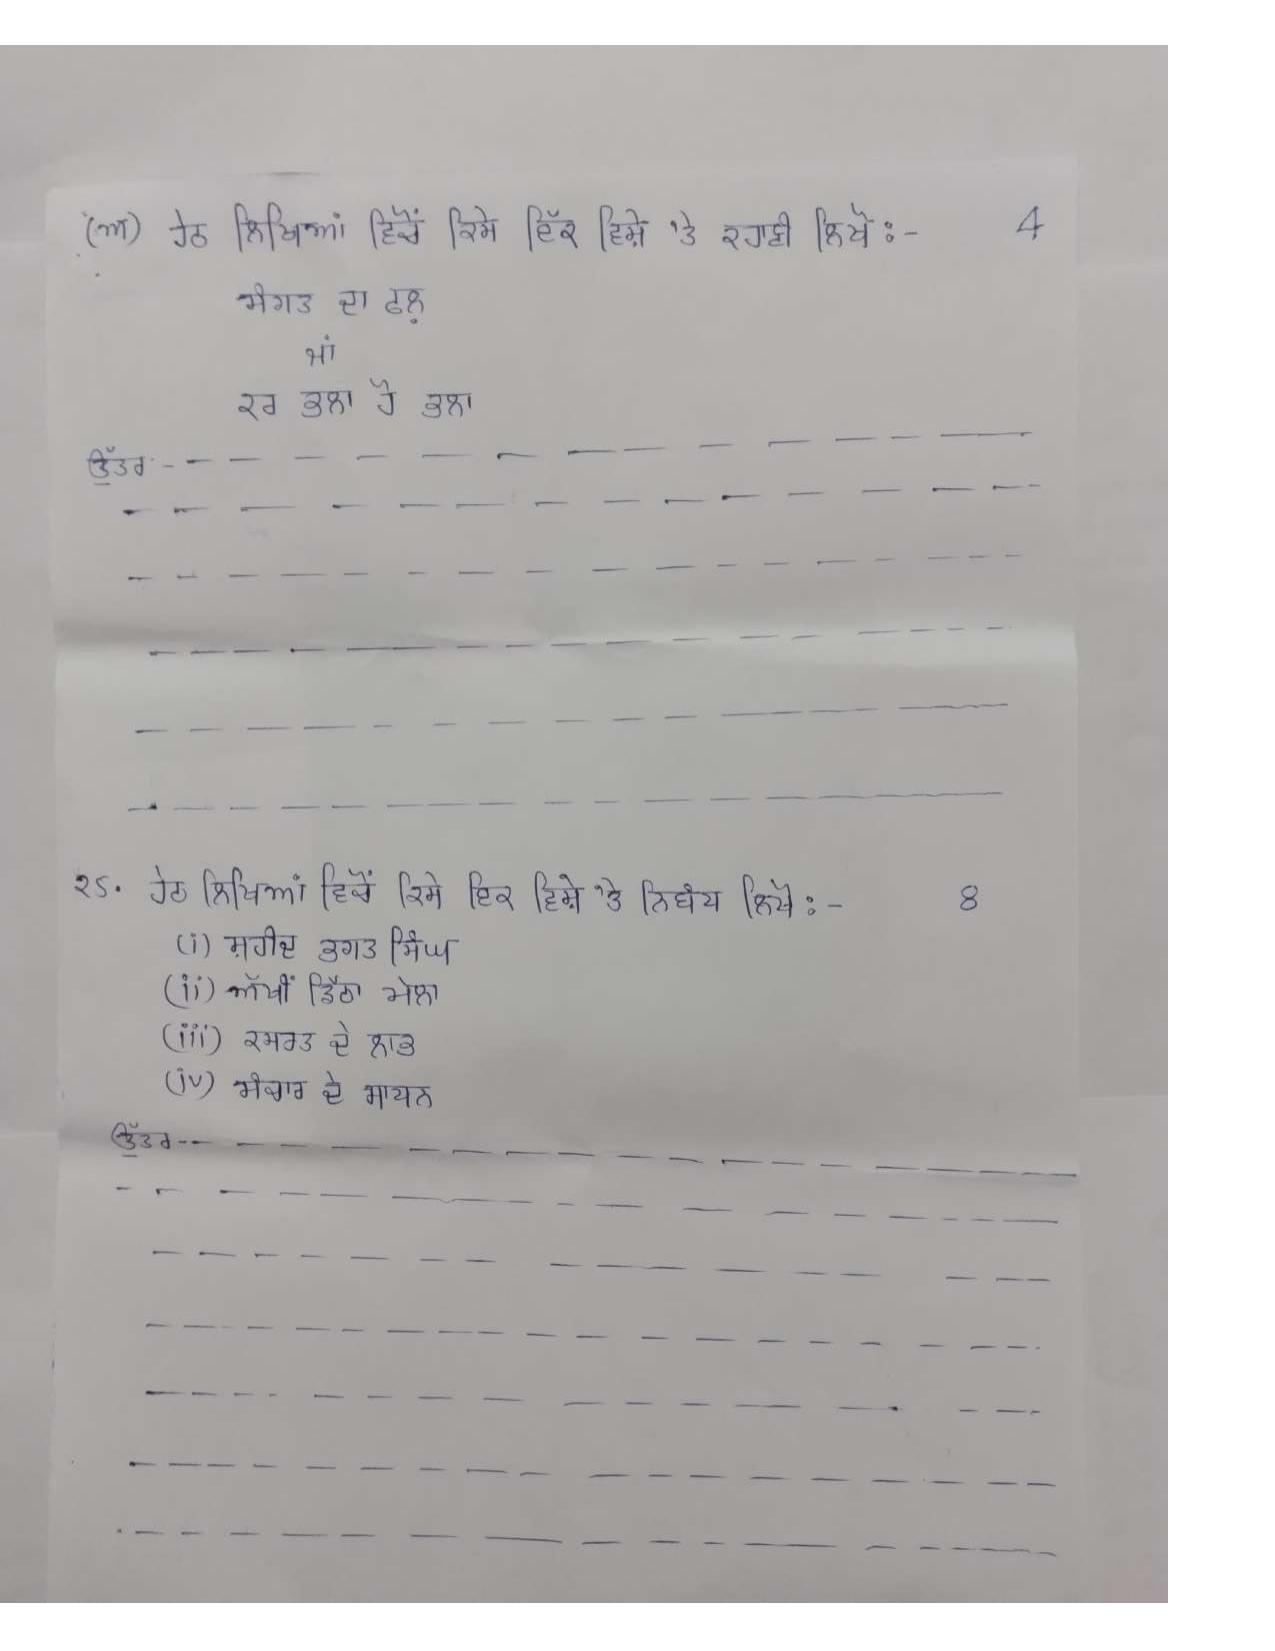 (ਅ) ਹੇਠ ਲਿਖਿਆਂ ਵਿੱਚੋਂ ਕਿਸੇ ਇੱਕ ਵਿਸ਼ੇ 'ਤੇ ਕਹਾਣੀ ਲਿਖੋ :- 4
ਸੰਗਤ ਦਾ ਫਲ਼
ਜਾਂ
ਕਰ ਭਲਾ ਹੋ ਭਲਾ
ਉੱਤਰ -
25. ਹੇਠ ਲਿਖਿਆਂ ਵਿਚੋਂ ਕਿਸੇ ਇਕ ਵਿਸ਼ੇ 'ਤੇ ਨਿਬੰਧ ਲਿਖੋ :- 8
(i) ਸ਼ਹੀਦ ਭਗਤ ਸਿੰਘ
(ii) ਅੱਖੀਂ ਡਿੱਠਾ ਮੇਲਾ
(iii) ਕਸਰਤ ਦੇ ਲਾਭ
(iv) ਸੰਚਾਰ ਦੇ ਸਾਧਨ
ਉੱਤਰ --